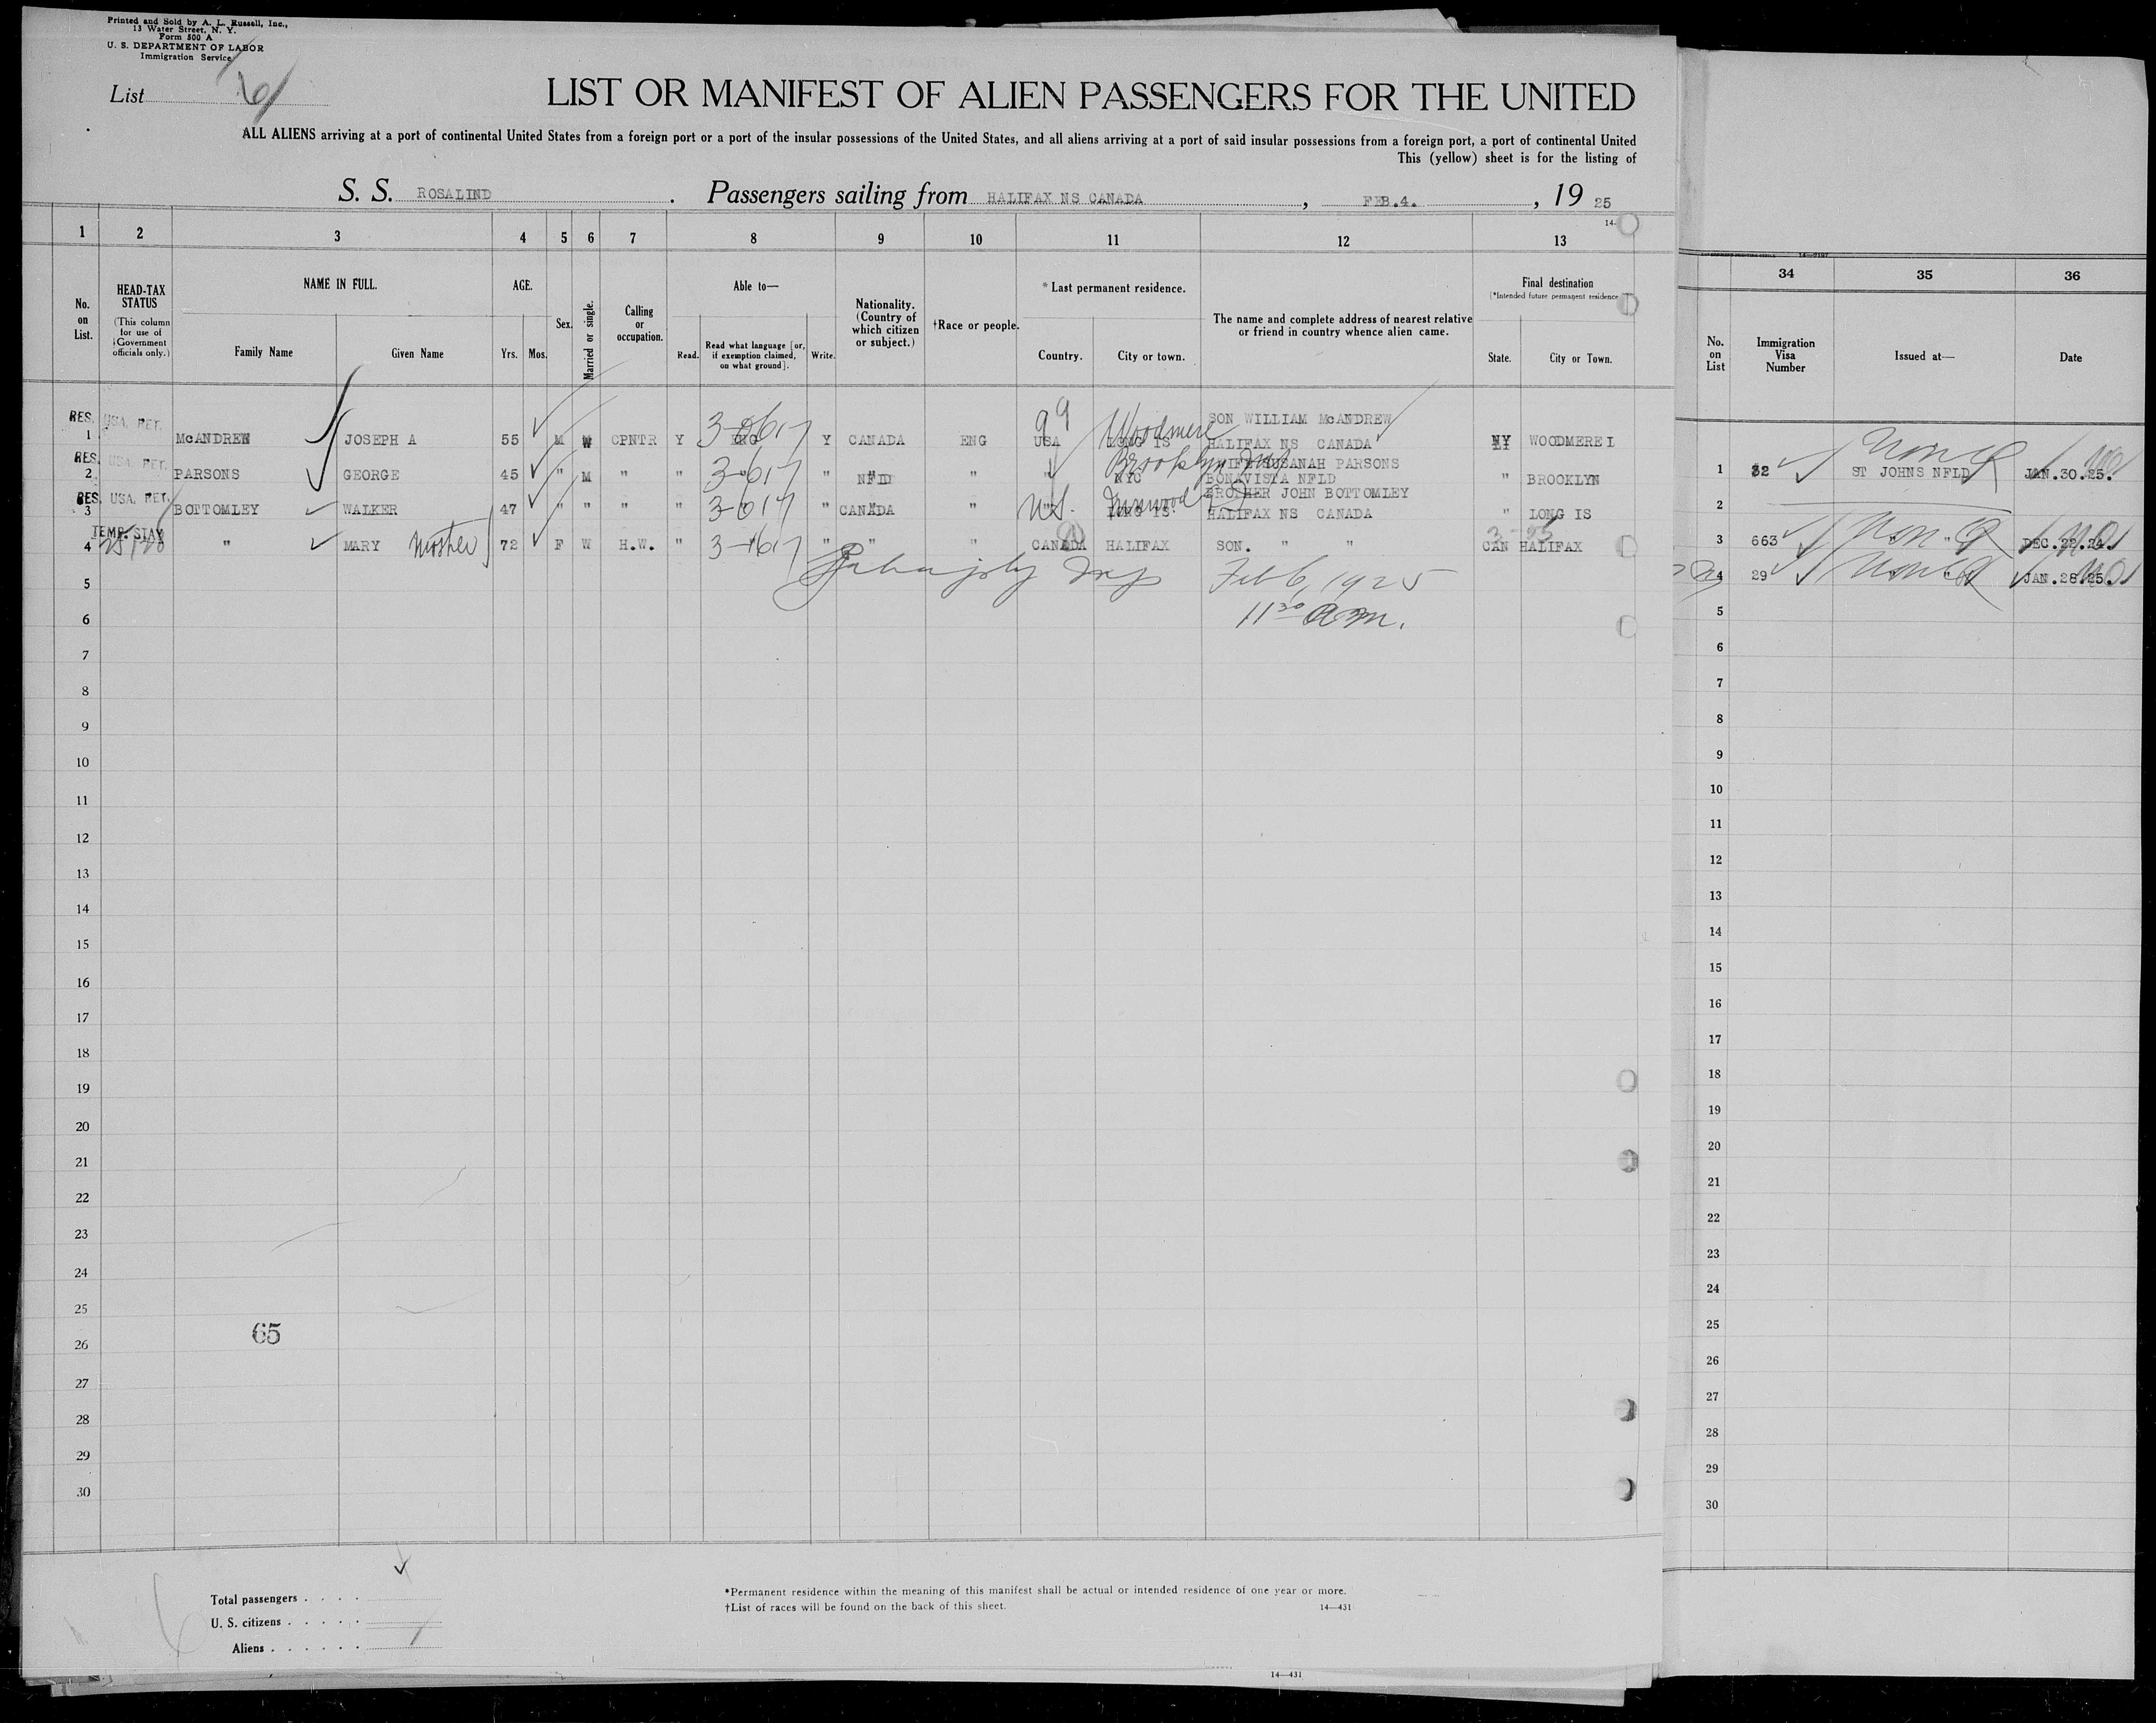 Printed and Sold by A. L. Russell, Inc.,
13 Water Street, N. Y.
Form 500 A
U. S. DEPARTMENT OF LABOR
Immigration Service
List 6
LIST OR MANIFEST OF ALIEN PASSENGERS FOR THE UNITED
ALL ALIENS arriving at a port of continental United States from a foreign port or a port of the insular possessions of the United States, and all aliens arriving at a port of said insular possessions from a foreign port, a port of continental United
This (yellow) sheet is for the listing of
S. S. ROSALIND . Passengers sailing from HALIFAX NS CANADA , FEB.4. , 19 25
1 2 3 4 5 6 7 8 9 10 11 12 13
No. on List.
HEAD-TAX STATUS
(This column for use of Government officials only.)
NAME IN FULL.
Family Name
Given Name
AGE.
Yrs. Mos.
Sex.
Married or single.
Calling or occupation.
Able to—
Read.
Read what language [or, if exemption claimed, on what ground].
Write.
Nationality. (Country of which citizen or subject.)
†Race or people.
* Last permanent residence.
Country.
City or town.
The name and complete address of nearest relative or friend in country whence alien came.
Final destination
(*Intended future permanent residence
State.
City or Town.
34 35 36
No. on List
Immigration Visa Number
Issued at—
Date
RES. USA. RET. SON WILLIAM McANDREW
1 McANDREW JOSEPH A 55 M W CPNTR Y ENG Y CANADA ENG USA LONG IS Woodmere HALIFAX NS CANADA NY WOODMERE I
RES. USA. RET. WIFE SUSANAH PARSONS
2 PARSONS GEORGE 45 " M " " " " NFLD " " NYC Brooklyn BONAVISTA NFLD " BROOKLYN
RES. USA. RET. BROTHER JOHN BOTTOMLEY
3 BOTTOMLEY WALKER 47 " " " " " " CANADA " LONG IS HALIFAX NS CANADA " LONG IS
TEMP. STAY
4 " MARY Mother 72 F W H.W. " " " " " CANADA HALIFAX SON. " " CAN HALIFAX
Feb 6, 1925
11 30 a.m.
5
6
7
8
9
10
11
12
13
14
15
16
17
18
19
20
21
22
23
24
25
26
27
28
29
30
65
1 32 ST JOHNS NFLD JAN.30.25.
2
3 663 " DEC.22.24.
4 29 " " JAN.28.25.
5
6
7
8
9
10
11
12
13
14
15
16
17
18
19
20
21
22
23
24
25
26
27
28
29
30
Total passengers . . . .
U. S. citizens . . . . .
Aliens . . . . . .
*Permanent residence within the meaning of this manifest shall be actual or intended residence of one year or more.
†List of races will be found on the back of this sheet. 14—431
14—431